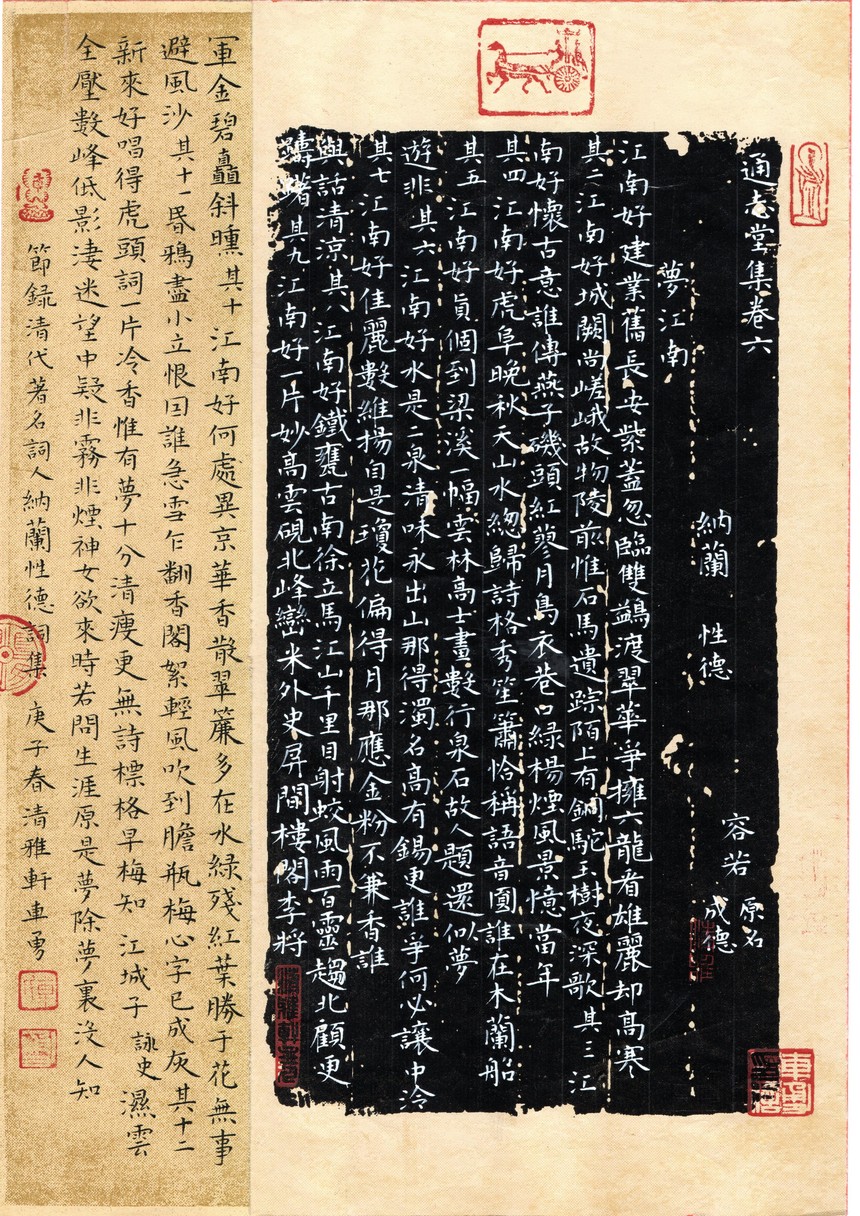 通志堂集卷六
夢江南
納蘭 性德
容若 原名
成德
江南好建業舊長安紫蓋忽臨雙鷁渡翠華爭擁六龍看雄麗却高寒
其二江南好城闕尚嵯峨故物陵前惟石馬遺踪陌上有銅駝玉樹夜深歌 其三江
南好懷古意誰傳燕子磯頭紅蓼月烏衣巷口綠楊煙風景憶當年
其四 江南好虎阜晚秋天山水總歸詩格秀笙簫恰稱語音圓誰在木蘭船
其五 江南好真個到梁溪一幅雲林高士畫數行泉石故人題還似夢
遊非 其六 江南好水是二泉清味永出山那得濁名高有錫更誰爭何必讓中泠
其七 江南好佳麗數維揚自是瓊花偏得月那應金粉不兼香誰
與話清涼 其八 江南好鐵甕古南徐立馬江山千里目射蛟風雨百靈趨北顧更
躊躇 其九 江南好一片妙高雲硯北峰巒米外史屏間樓閣李將
軍金碧矗斜曛 其十 江南好何處異京華香散翠簾多在水綠殘紅葉勝于花無事
避風沙 其十一 昏鴉盡小立恨因誰急雪乍翻香閣絮輕風吹到膽瓶梅心字已成灰 其十二
新來好唱得虎頭詞一片冷香惟有夢十分清瘦更無詩標格早梅知 江城子 詠史 濕雲
全壓數峰低影淒迷望中疑非霧非煙神女欲來時若問生涯原是夢除夢裏沒人知
節録清代著名詞人納蘭性德詞集 庚子春清雅軒車勇